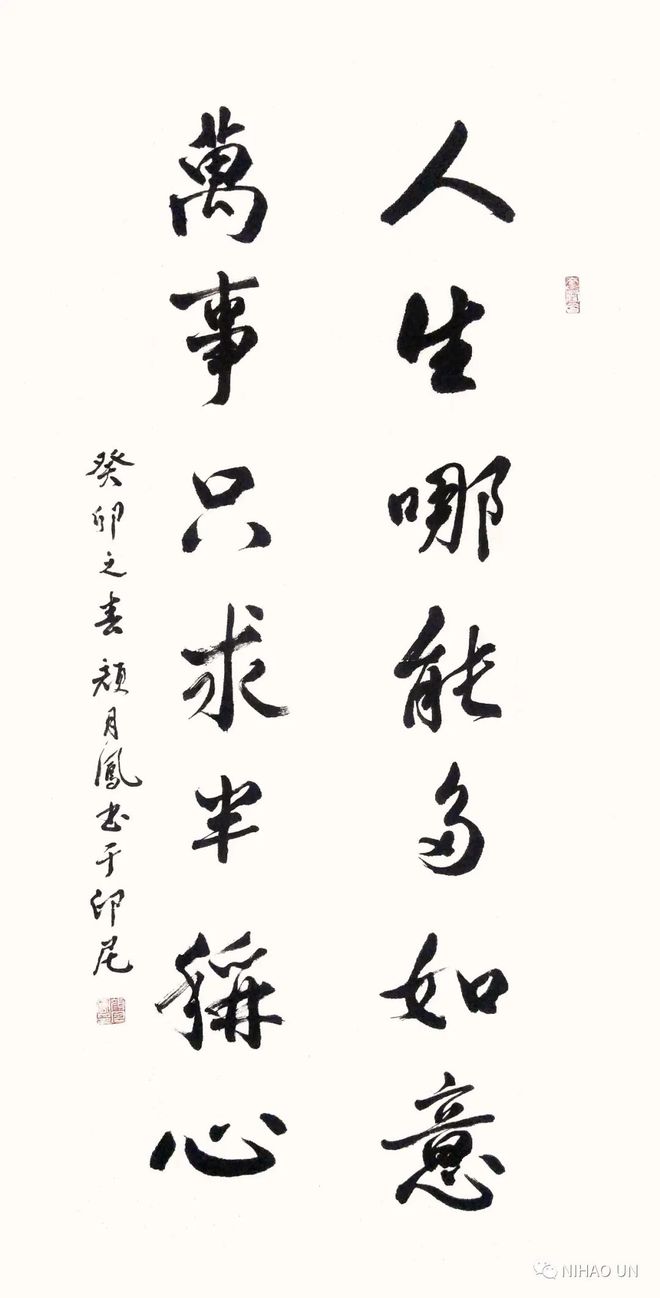 人生哪能多如意
萬事只求半稱心
癸卯之春 顏月鳳書于印尼
NIHAO UN